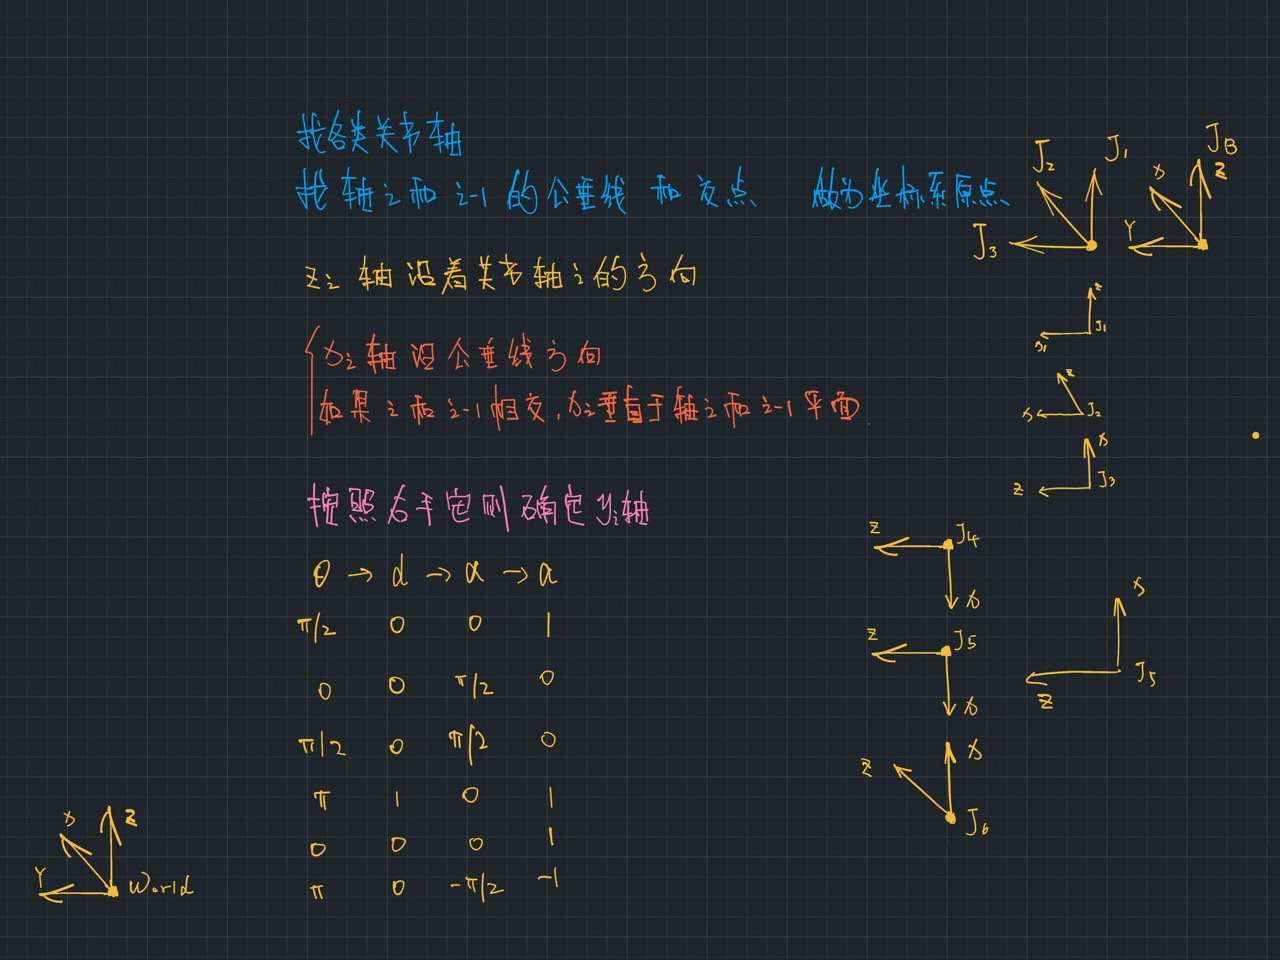 找各类关节轴
找轴i和i-1的公垂线和交点 做为坐标系原点
zi轴沿着关节轴i的方向
xi轴沿公垂线方向
如果i和i-1相交,xi垂直于轴i和i-1平面.
按照右手定则确定yi轴
θ → d → α → a
π/2 0 0 1
0 0 π/2 0
π/2 0 π/2 0
π 1 0 1
0 0 0 1
π 0 -π/2 -1
J2 J1 J3
JB Z X Y
Z J1 X1
Z X J2
X Z J3
Z J4 X
Z J5 X
X Z J5
X Z J6
X Z Y World